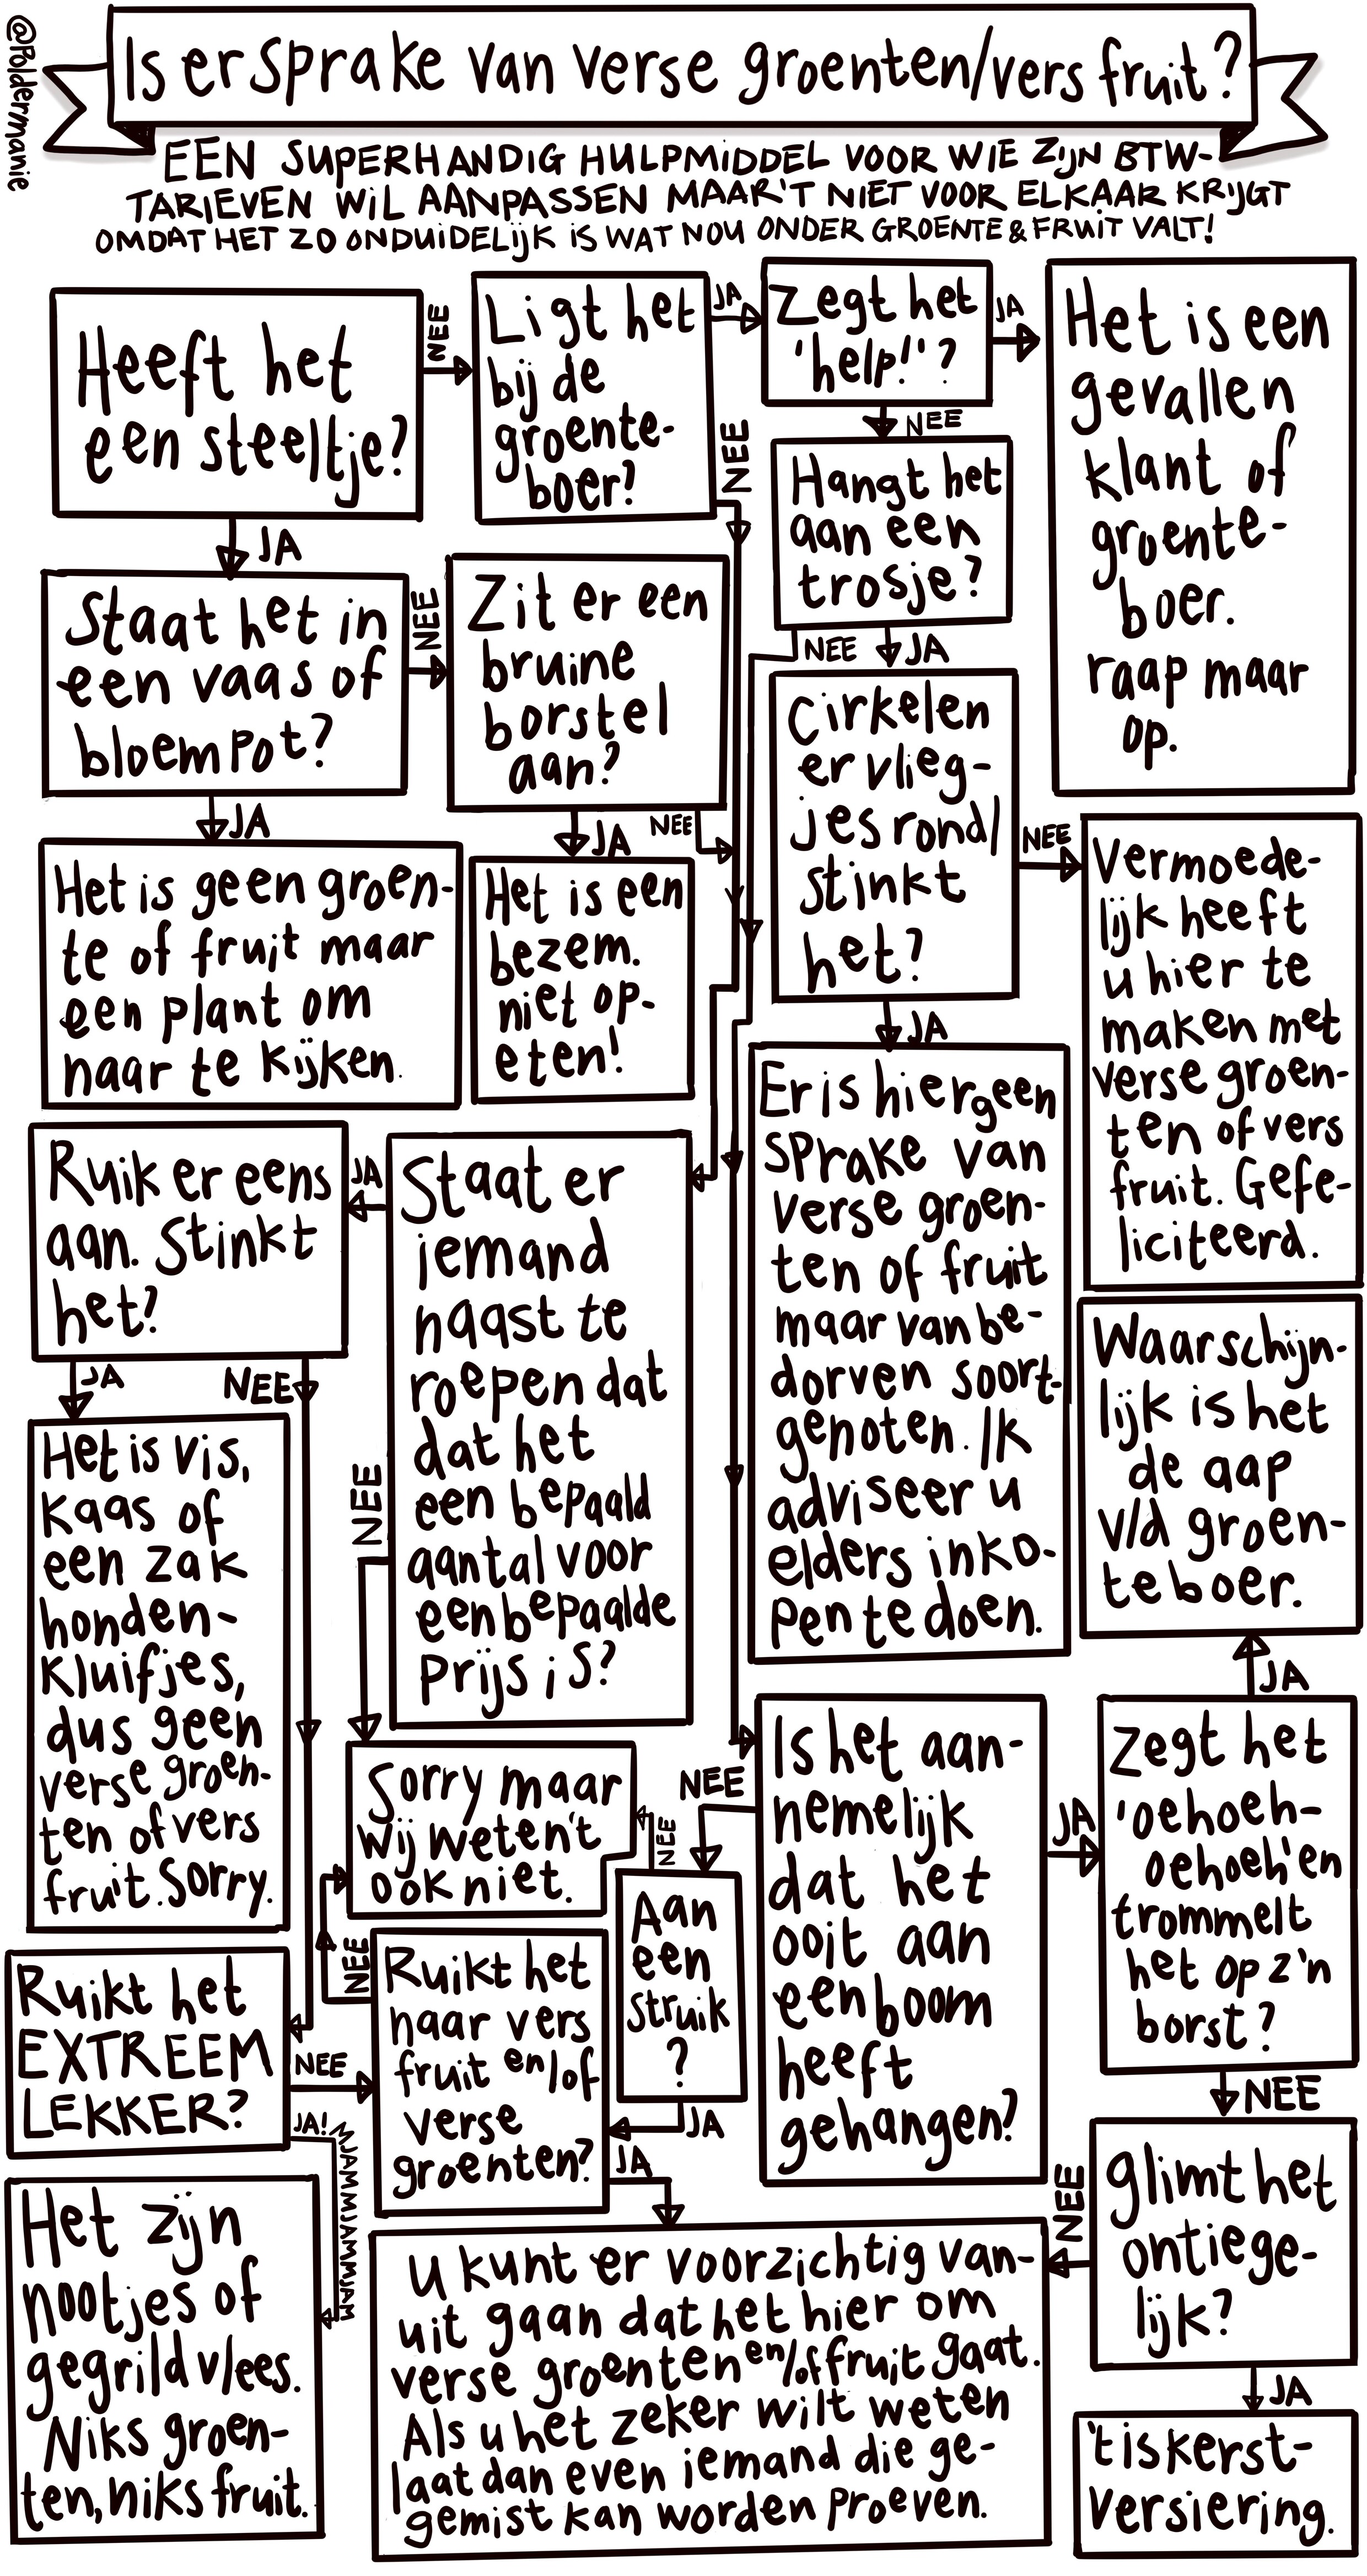 @Poldermanie
Is er sprake van verse groenten/vers fruit?
EEN SUPERHANDIG HULPMIDDEL VOOR WIE ZIJN BTW-
TARIEVEN WIL AANPASSEN MAAR'T NIET VOOR ELKAAR KRIJGT
OMDAT HET ZO ONDUIDELIJK IS WAT NOU ONDER GROENTE & FRUIT VALT!
Heeft het
een steeltje?
NEE
JA
Ligt het
bij de
groente-
boer?
JA
NEE
Zegt het
'help!'?
JA
NEE
Het is een
gevallen
klant of
groente-
boer.
raap maar
op.
Hangt het
aan een
trosje?
NEE
JA
Staat het in
een vaas of
bloempot?
NEE
JA
Zit er een
bruine
borstel
aan?
JA
NEE
Cirkelen
er vlieg-
jes rond/
stinkt
het?
NEE
JA
Vermoede-
lijk heeft
u hier te
maken met
verse groen-
ten of vers
fruit. Gefe-
liciteerd.
Het is geen groen-
te of fruit maar
een plant om
naar te kijken.
Het is een
bezem.
niet op-
eten!
Er is hier geen
sprake van
verse groen-
ten of fruit
maar van be-
dorven soort-
genoten. Ik
adviseer u
elders inko-
pen te doen.
Ruik er eens
aan. Stinkt
het?
JA
NEE
JA
Staat er
iemand
naast te
roepen dat
dat het
een bepaald
aantal voor
een bepaalde
prijs is?
NEE
Waarschijn-
lijk is het
de aap
v/d groen-
teboer.
JA
Het is vis,
kaas of
een zak
honden-
kluifjes,
dus geen
verse groen-
ten of vers
fruit. Sorry.
Sorry maar
wij weten't
ook niet.
NEE
NEE
Is het aan-
nemelijk
dat het
ooit aan
een boom
heeft
gehangen?
JA
Zegt het
'oehoeh-
oehoeh' en
trommelt
het op z'n
borst?
NEE
Aan
een
struik
?
JA
Ruikt het
EXTREEM
LEKKER?
NEE
JA! MJAMMJAMMJAM
NEE
Ruikt het
naar vers
fruit en/of
verse
groenten?
JA
Glimt het
ontiege-
lijk?
NEE
JA
Het zijn
nootjes of
gegrild vlees.
Niks groen-
ten, niks fruit.
U kunt er voorzichtig van-
uit gaan dat het hier om
verse groenten en/of fruit gaat.
Als u het zeker wilt weten
laat dan even iemand die ge-
gemist kan worden proeven.
't is kerst-
versiering.